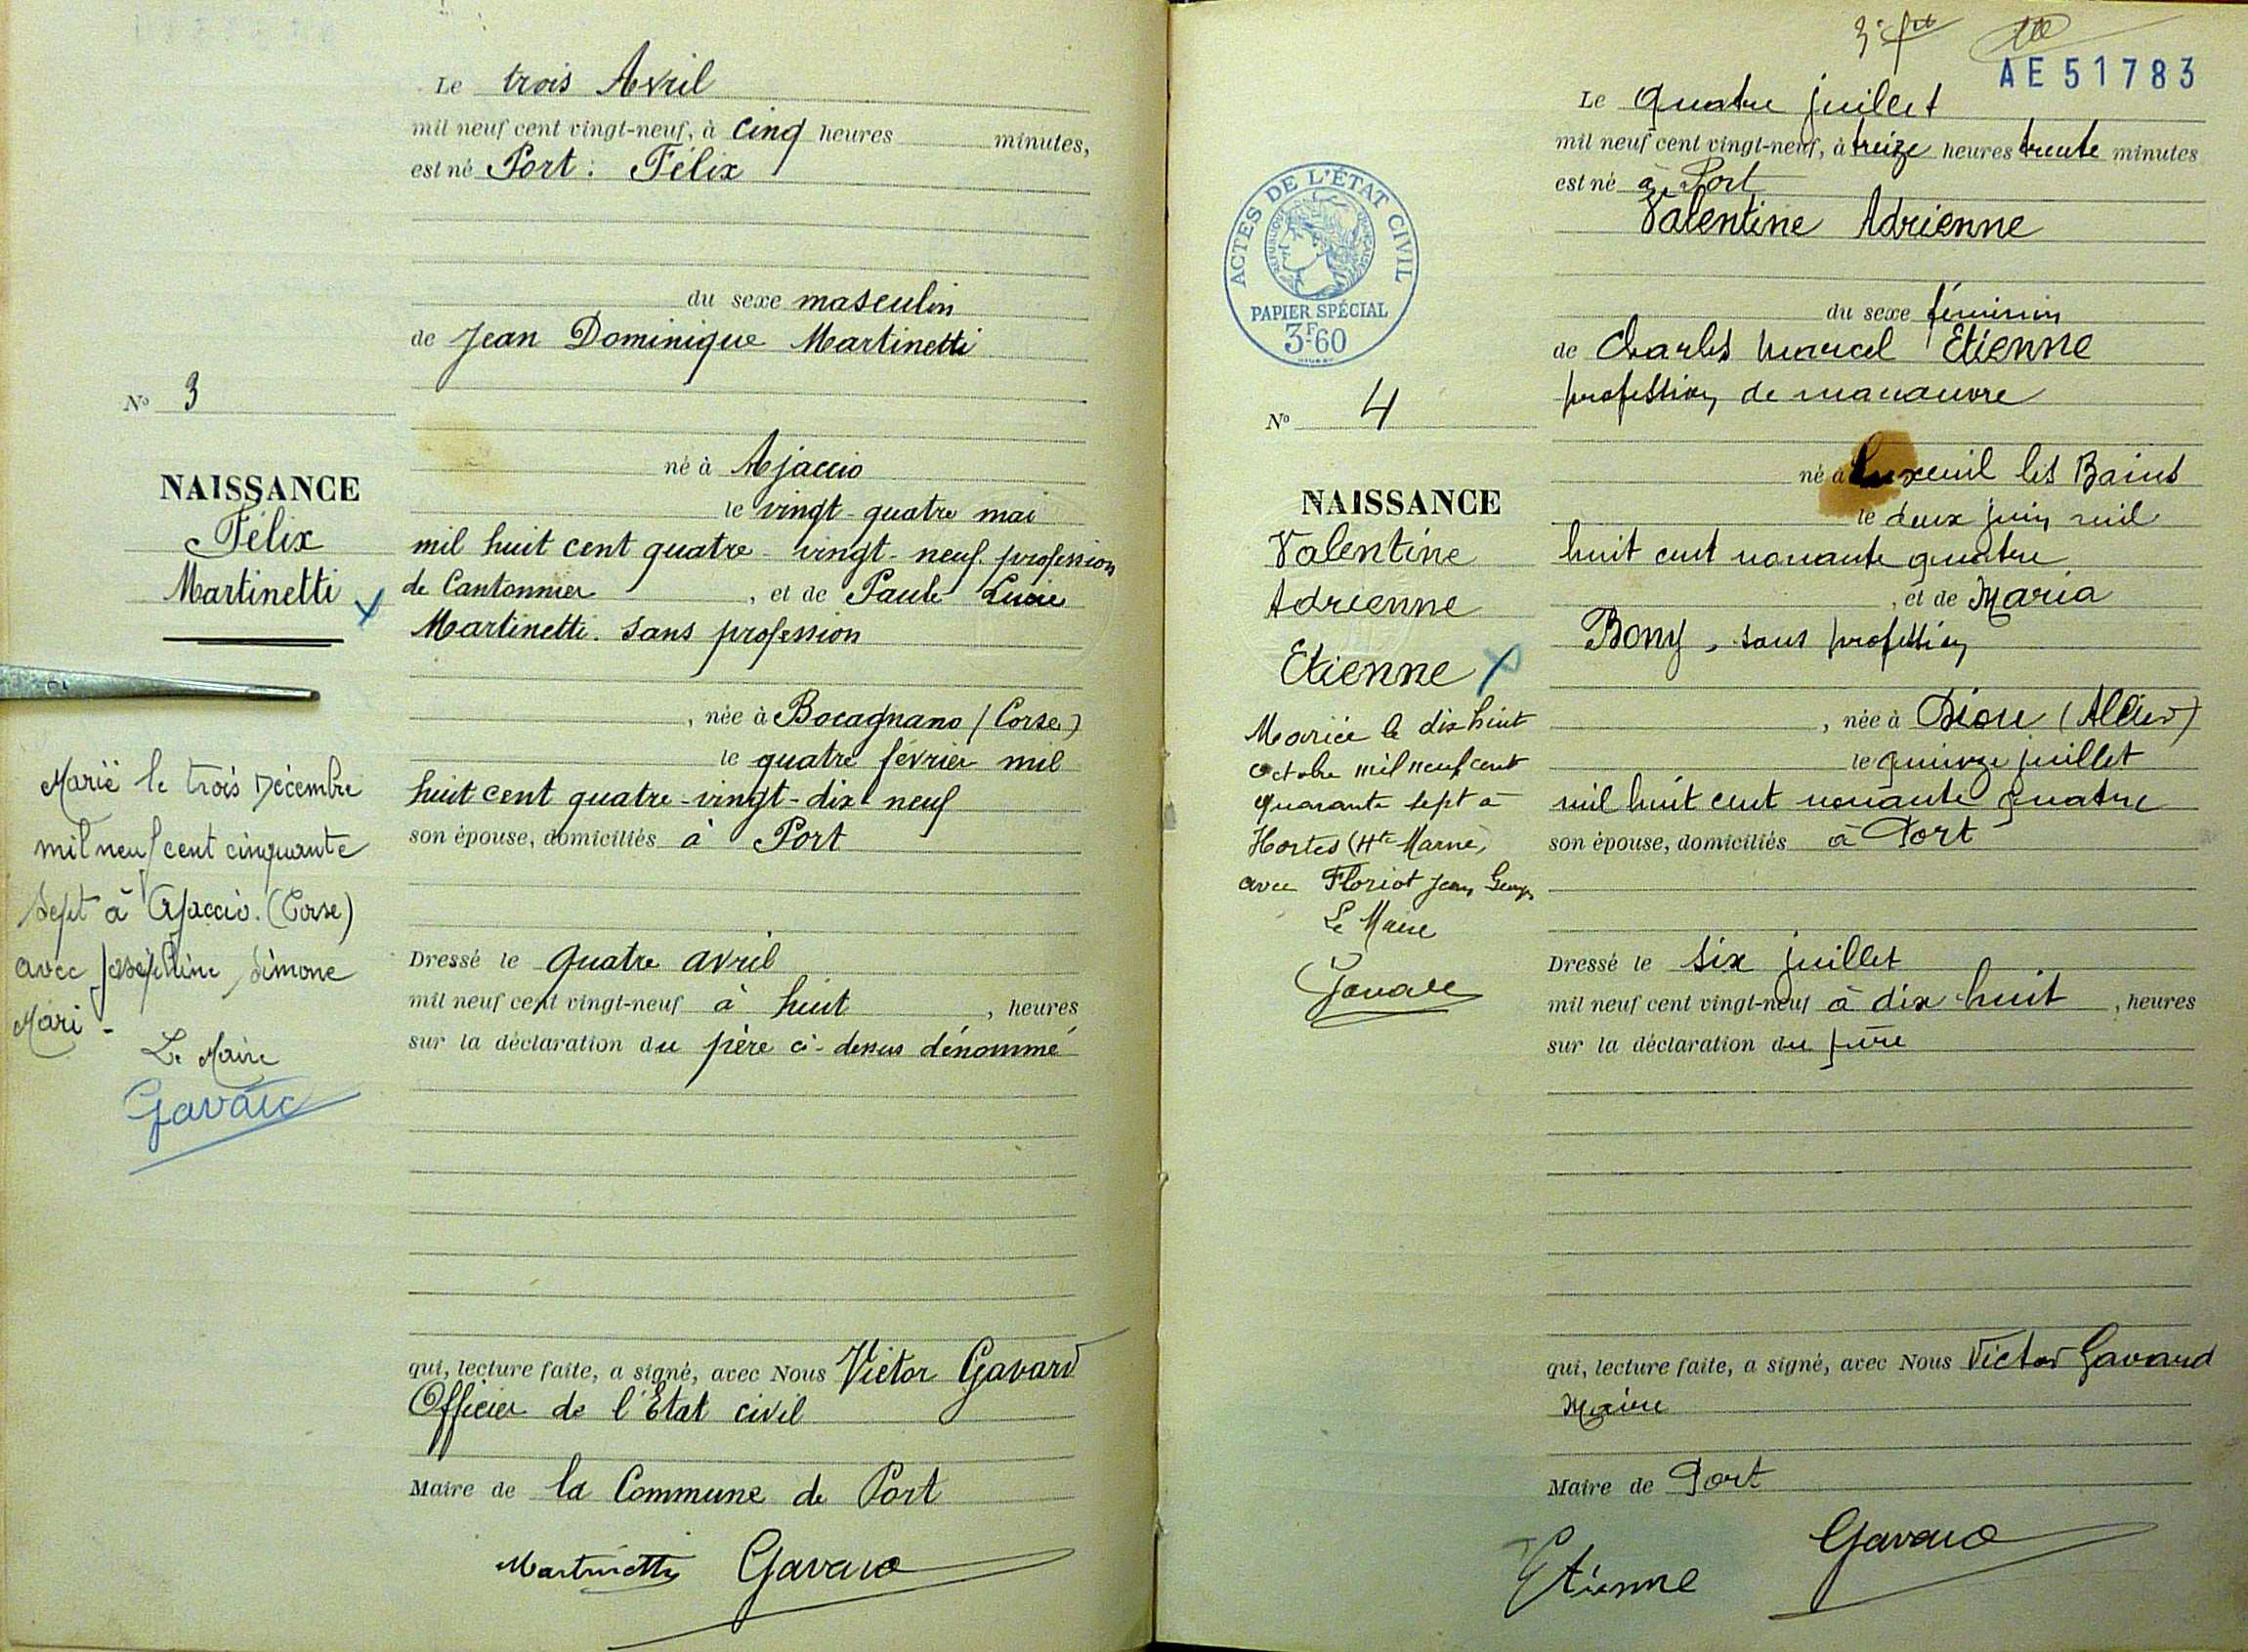 Le trois Avril
mil neuf cent vingt-neuf, à cinq heures minutes,
est né Port : Félix
du sexe masculin
de Jean Dominique Martinetti
N° 3
né à Ajaccio
le vingt-quatre mai
NAISSANCE
Félix
Martinetti
mil huit cent quatre-vingt-neuf. profession
de Cantonnier, et de Paule Lucie
Martinetti. Sans profession
, née à Bocagnano (Corse)
le quatre février mil
huit cent quatre-vingt-dix neuf
son épouse, domiciliés à Port
Marié le trois Décembre
mil neuf cent cinquante
sept à Ajaccio. (Corse)
avec Joséphine Simone
Mari -
Le Maire
Gavard
Dressé le quatre avril
mil neuf cent vingt-neuf à huit, heures
sur la déclaration du père ci-dessus dénommé
qui, lecture faite, a signé, avec Nous Victor Gavard
Officier de l'Etat civil
Maire de la Commune de Port
Martinetti Gavard
AE 51783
Le quatre juillet
mil neuf cent vingt-neuf, à treize heures trente minutes
est né à Port
Valentine Adrienne
ACTES DE L'ÉTAT CIVIL
RÉPUBLIQUE FRANÇAISE
PAPIER SPÉCIAL
3F.60
du sexe féminin
de Charles Marcel Etienne
profession de manœuvre
N° 4
né à Luxeuil les Bains
le deux juin mil
huit cent nonante quatre
, et de Maria
Bony, sans profession
NAISSANCE
Valentine
Adrienne
Etienne
, née à Diou (Allier)
le quinze juillet
mil huit cent nonante quatre
son épouse, domiciliés à Port
Mariée le dix huit
octobre mil neuf cent
quarante sept à
Hortes (Hte Marne)
avec Floriot Jean Georges
Le Maire
Gavard
Dressé le six juillet
mil neuf cent vingt-neuf à dix huit, heures
sur la déclaration du père
qui, lecture faite, a signé, avec Nous Victor Gavard
Maire
Maire de Port
Etienne Gavard